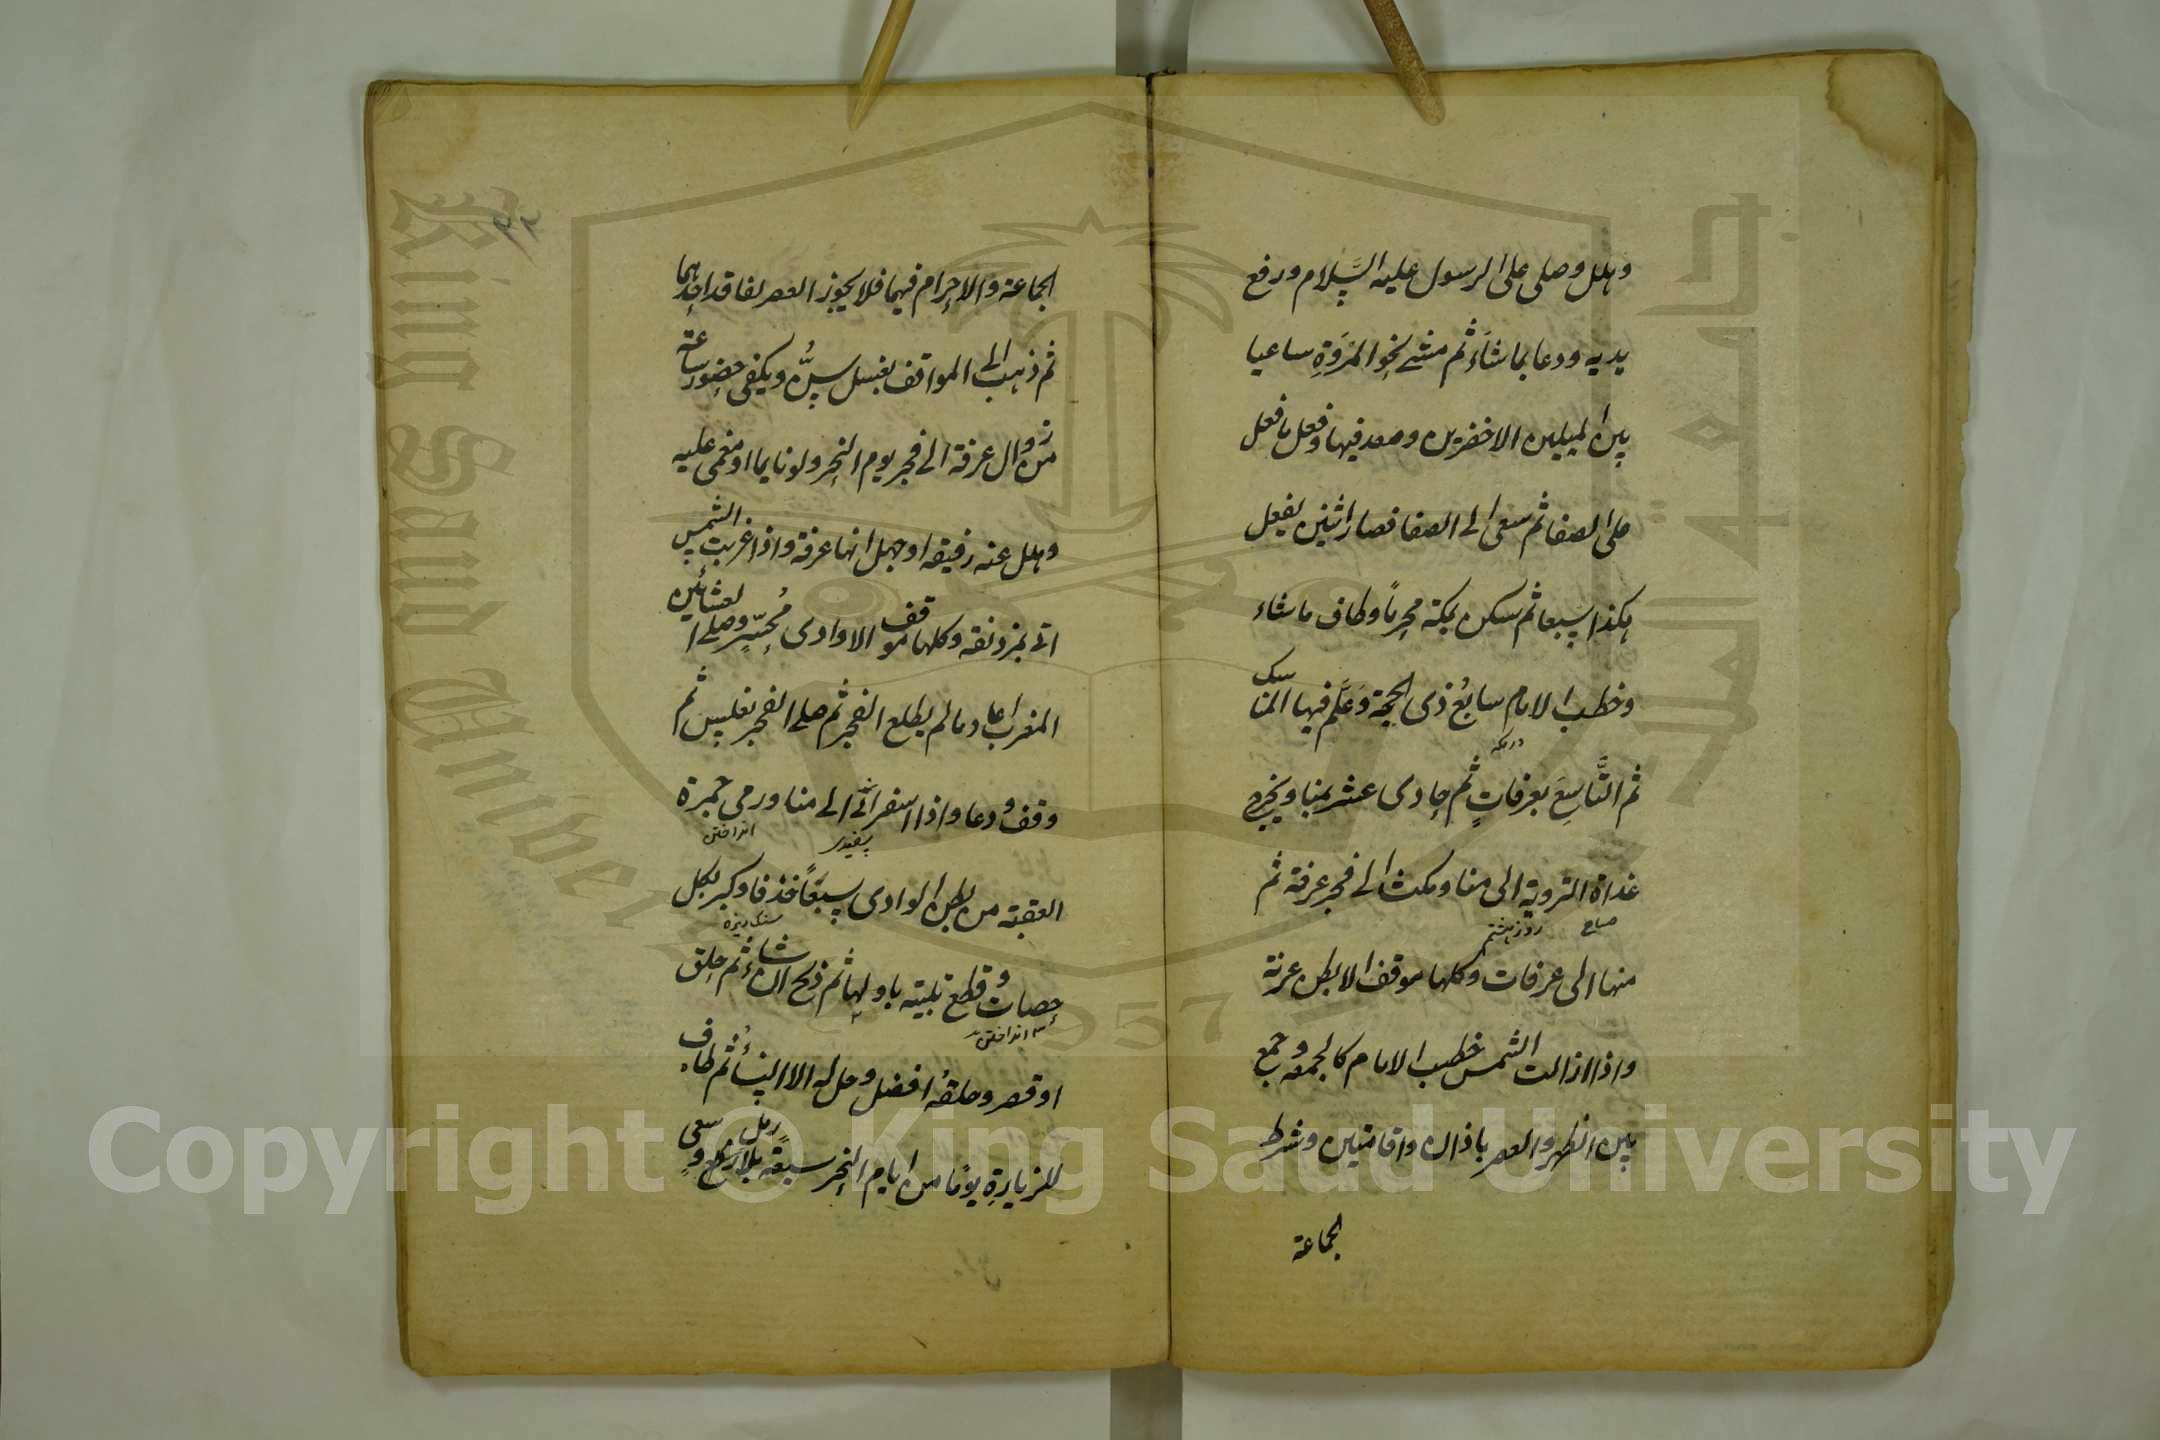 وهلل وصلى على الرسول عليه السلام ورفع
يديه ودعا بما شاء ثم مشے نحو المَرْوَةِ ساعيا
بين الميلين الاخضرين وصعد فيها وفعل ما فعل
على الصفا ثم سعى الے الصفا فصار اثنين يفعل
هكذا سبعا ثم سكن بمكة محرمًا وطاف ما شاء
وخطب الامام سابعُ ذى الحجة وعَلَّم فيها المناسك
ثم التَّاسِعَ بعرفاتٍ ثم حادى عشر بمنا ويخرج
در مكه
غداة التروية الى منا ومكث الے فجر عرفة ثم
صباح روز هشتم
منها الى عرفات وكلها موقف الا بطن عرنة
واذا ازالت الشمس خطب الامام كالجمعه وجمع
بين الظهر والعصر باذان واقامتين وشرط
الجماعة
٣٣
الجماعة والاحرام فيهما فلا يجوز العصر لفاقد احدهما
ثم ذهب الى المواقف بغسل سنّ ويكفى حضور ساعة
من زوال عرفة الے فجر يوم النحر ولو نايما او مغمى عليه
وهلل عنه رفيقه او جهل انها عرفة واذا غربت الشمس
اتے بمزدلفة وكلها موقف الا وادى مُحسِّرٍ وصلے العشائين
المغرب اعاد ما لم يطلع الفجر ثم صلے الفجر بغلس ثم
وقف ودعا واذا اسفر اتے الے منا ورمى جمرة
سفيدى انداختن
العقبة من بطن الوادى سبعًا خذفا وكبر بكل
سنك ريزه
حصات وقطع تلبيته باولها ثم ذبح ان شاء ثم حلق
انداختن
او قصر وحلقُه افضل وحل له الا النساءُ ثم طاف
للزيارةِ يومًا من ايام النحر سبعة بلا رمل وسعى
Copyright © King Saud University
King Saud University
جامعة الملك
1957